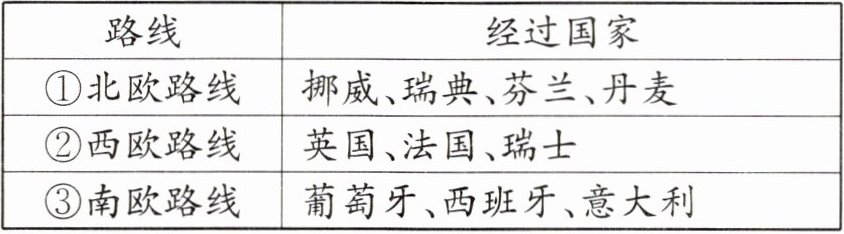 路线 经过国家
①北欧路线 挪威、瑞典、芬兰、丹麦
②西欧路线 英国、法国、瑞士
③南欧路线 葡萄牙、西班牙、意大利